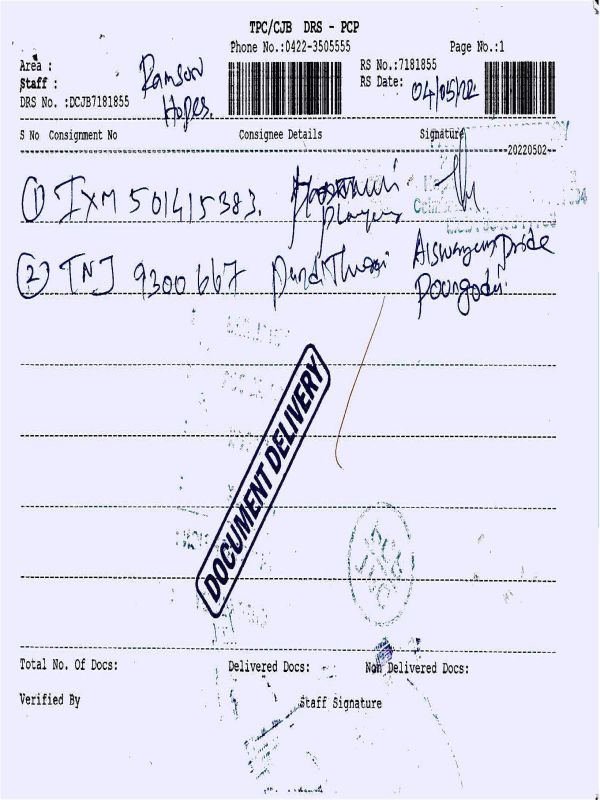 TPC/CJB DRS - PCP
Phone No.:0422-3505555 Page No.:1
Area :
Staff : Ramson
RS No.:7181855
RS Date: 04/05/22
DRS No. :DCJB7181855 Hopes.
S No Consignment No Consignee Details Signature
20220502
① IXM 501415383. players
② TNJ 9300667 Aiswarya pride
Poongodi
DOCUMENT DELIVERY
Total No. Of Docs: Delivered Docs: Non Delivered Docs:
Verified By Staff Signature